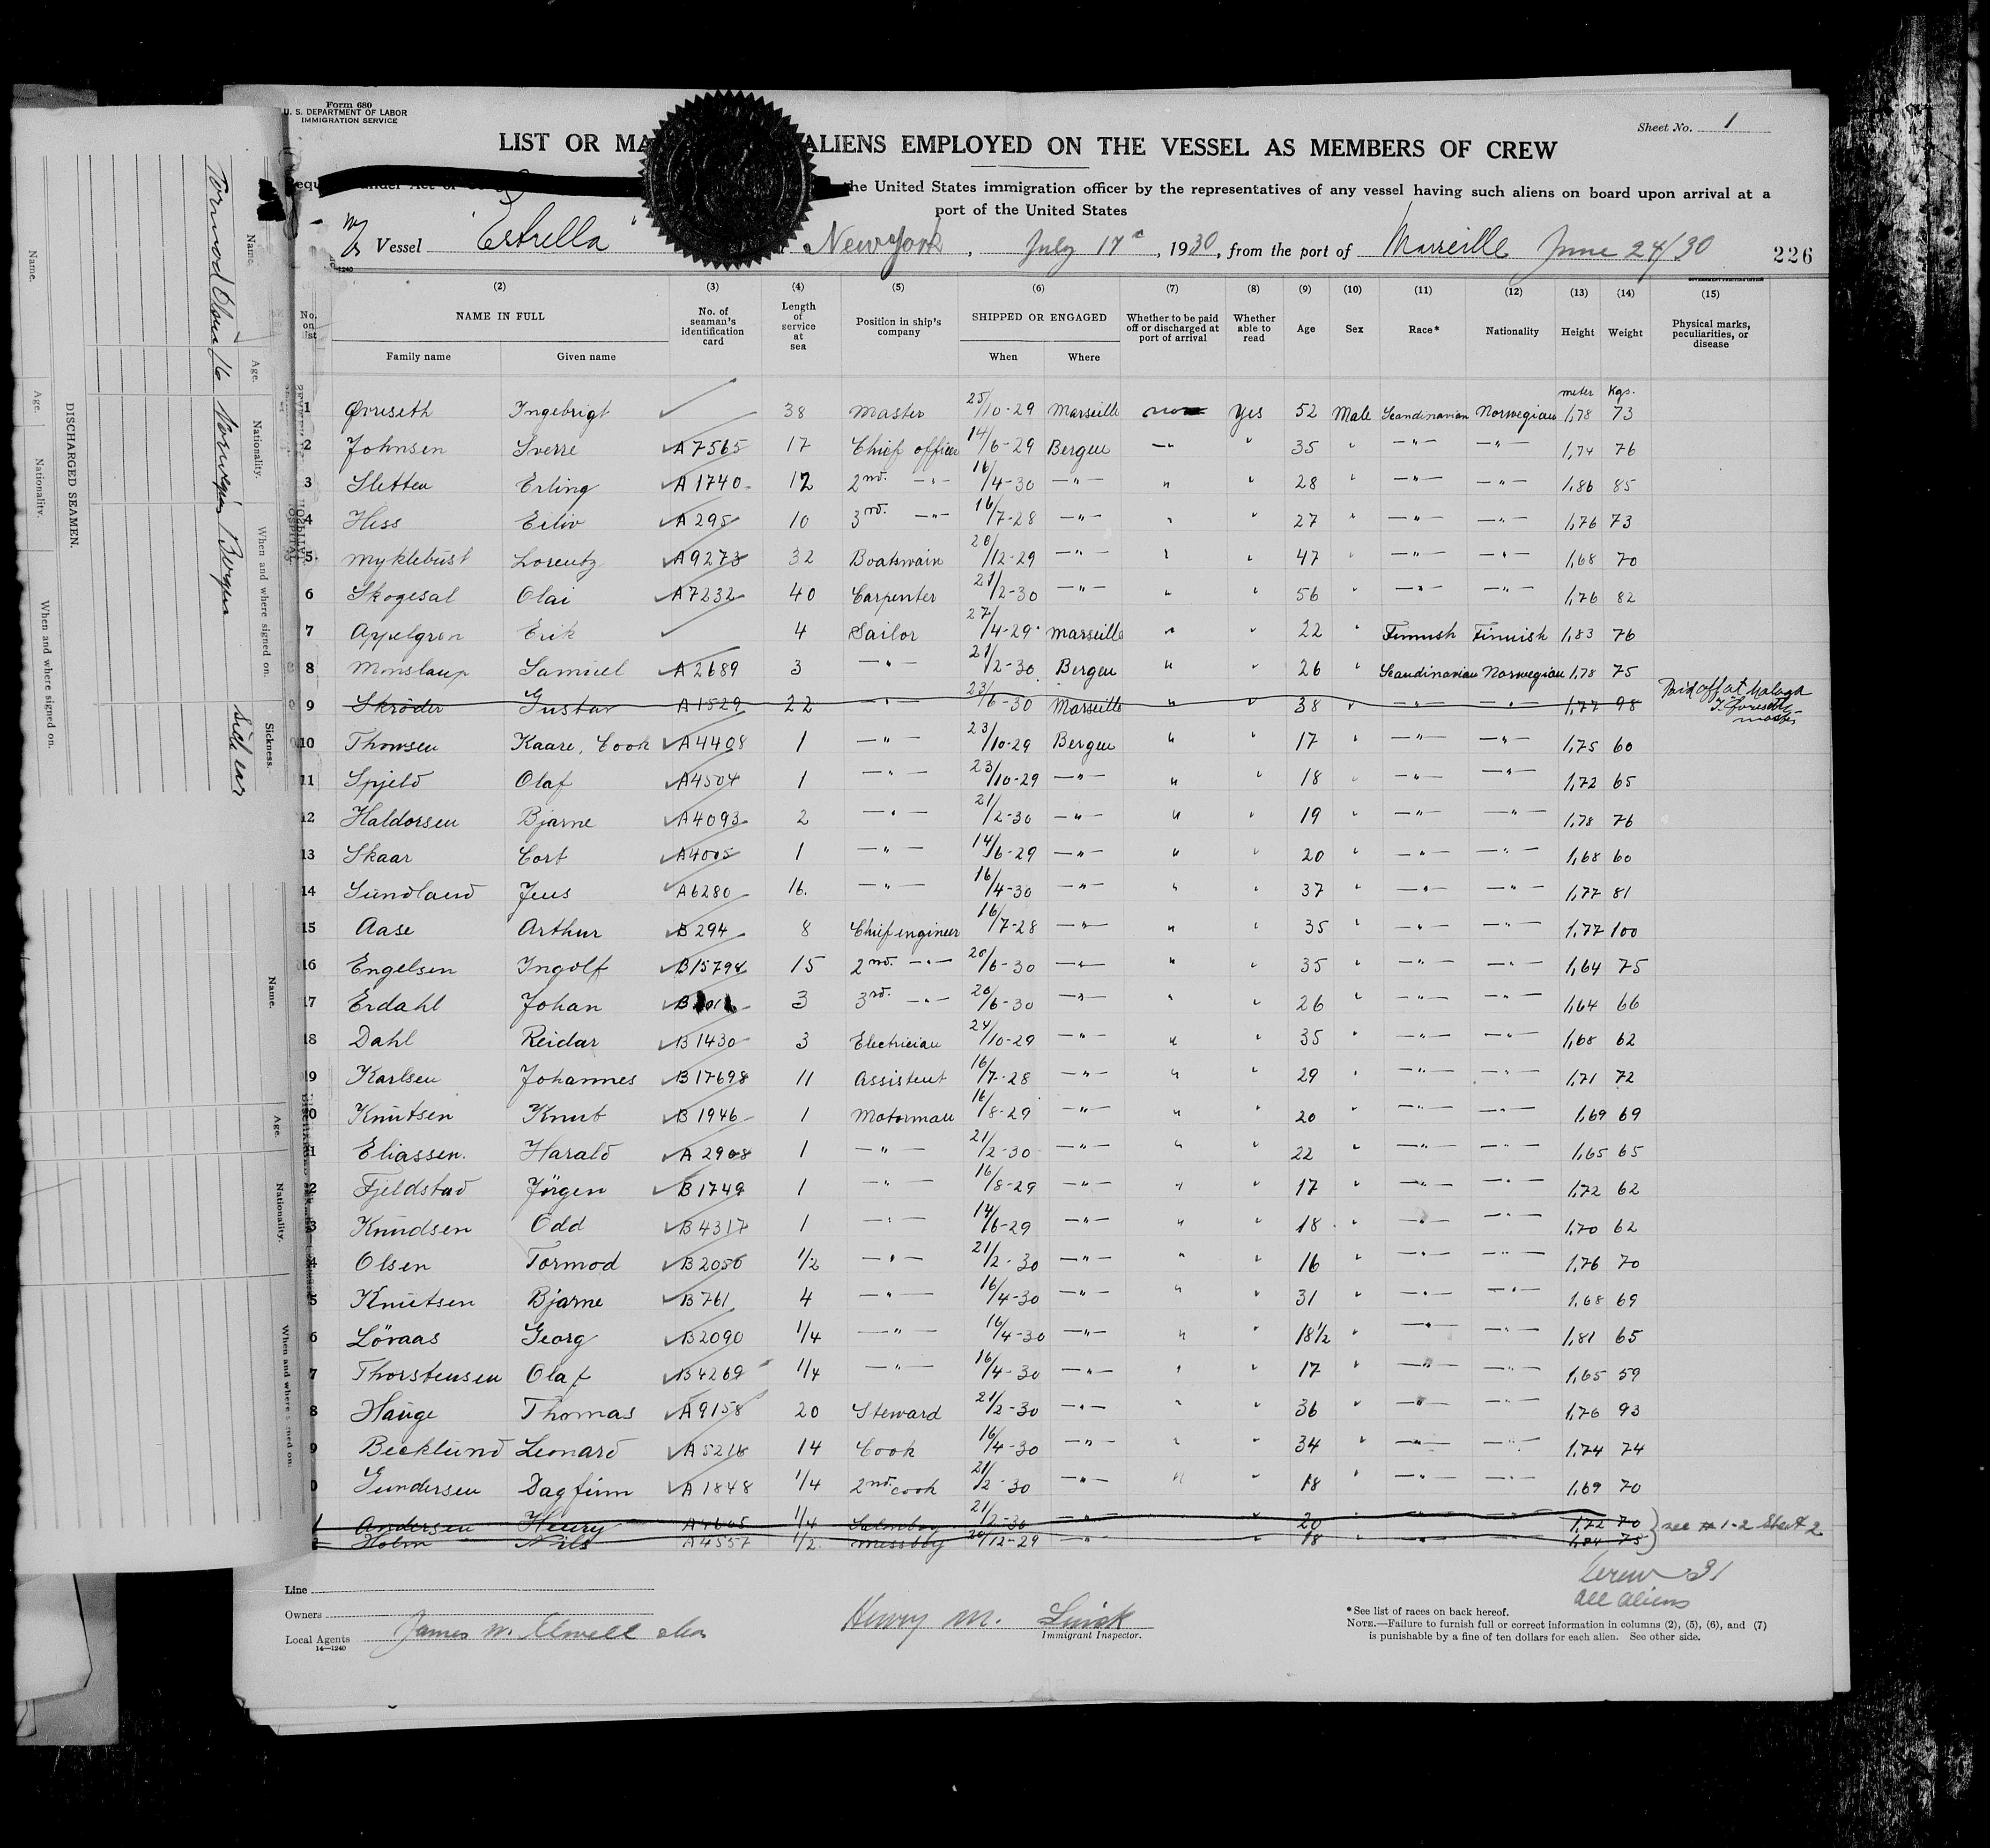 Form 680
U. S. DEPARTMENT OF LABOR
IMMIGRATION SERVICE
Sheet No. 1
LIST OR MA ALIENS EMPLOYED ON THE VESSEL AS MEMBERS OF CREW
the United States immigration officer by the representatives of any vessel having such aliens on board upon arrival at a
port of the United States
Vessel "Estrella" New York, July 17, 1930, from the port of Marseille June 24/30
226
(2) (3) (4) (5) (6) (7) (8) (9) (10) (11) (12) (13) (14) (15)
No. on list NAME IN FULL Family name Given name No. of seaman's identification card Length of service at sea Position in ship's company SHIPPED OR ENGAGED When Where Whether to be paid off or discharged at port of arrival Whether able to read Age Sex Race* Nationality Height Weight Physical marks, peculiarities, or disease
meter Kgs.
1 Øvreseth Ingebrigt 38 Master 25/10-29 Marseille Yes 52 Male Scandinavian Norwegian 1,78 73
2 Johnsen Sverre A7565 17 Chief officer 14/6-29 Bergen — " — " 35 " — " — — " — 1,74 76
3 Sletten Erling A1740 12 2nd. — " — 16/4-30 — " — " " 28 " — " — — " — 1,86 85
4 Hess Eiliv A295 10 3rd. — " — 16/7-28 — " — " " 27 " — " — — " — 1,76 73
5 Myklebust Lorentz A9273 32 Boatswain 20/12-29 — " — " " 47 " — " — — " — 1,68 70
6 Skogesal Olai A7232 40 Carpenter 21/2-30 — " — " " 56 " — " — — " — 1,76 82
7 Appelgren Erik 4 Sailor 27/4-29 Marseille " " 22 " Finnish Finnish 1,83 76
8 Monslaup Samuel A2689 3 — " — 21/2-30 Bergen " " 26 " Scandinavian Norwegian 1,78 75
9 Skröder Gustav A1529 22 — " — 23/6-30 Marseille " " 38 " — " — — " — 1,77 98 Paid off at Malaga
10 Thomsen Kaare, Cook A4408 1 — " — 23/10-29 Bergen " " 17 " — " — — " — 1,75 60
11 Spjeld Olaf A4504 1 — " — 23/10-29 — " — " " 18 " — " — — " — 1,72 65
12 Haldorsen Bjarne A4093 2 — " — 21/2-30 — " — " " 19 " — " — — " — 1,78 76
13 Skaar Cort A4005 1 — " — 14/6-29 — " — " " 20 " — " — — " — 1,68 60
14 Sundland Jens A6280 16. — " — 16/4-30 — " — " " 37 " — " — — " — 1,77 81
15 Aase Arthur B294 8 Chief engineer 16/7-28 — " — " " 35 " — " — — " — 1,77 100
16 Engelsen Ingolf B15794 15 2nd. — " — 20/6-30 — " — " " 35 " — " — — " — 1,64 75
17 Erdahl Johan 3 3rd. — " — 20/6-30 — " — " " 26 " — " — — " — 1,64 66
18 Dahl Reidar B1430 3 Electrician 24/10-29 — " — " " 35 " — " — — " — 1,68 62
19 Karlsen Johannes B17698 11 Assistent 16/7-28 — " — " " 29 " — " — — " — 1,71 72
0 Knutsen Knut B1946 1 Motorman 16/8-29 — " — " " 20 " — " — — " — 1,69 69
1 Eliassen. Harald A2908 1 — " — 21/2-30 — " — " " 22 " — " — — " — 1,65 65
2 Fjeldstad Jörgen B1749 1 — " — 16/8-29 — " — " " 17 " — " — — " — 1,72 62
3 Knudsen Odd B4317 1 — " — 14/6-29 — " — " " 18 " — " — — " — 1,70 62
4 Olsen Tormod B2086 1/2 — " — 21/2-30 — " — " " 16 " — " — — " — 1,76 70
5 Knutsen Bjarne B761 4 — " — 16/4-30 — " — " " 31 " — " — — " — 1,68 69
6 Löraas Georg B2090 1/4 — " — 16/4-30 — " — " " 18 1/2 " — " — — " — 1,81 65
7 Thorstensen Olaf B4269 1/4 — " — 16/4-30 — " — " " 17 " — " — — " — 1,65 59
8 Hauge Thomas A9158 20 Steward 21/2-30 — " — " " 36 " — " — — " — 1,76 93
9 Becklund Leonard A5216 14 Cook 16/4-30 — " — " " 34 " — " — — " — 1,74 74
0 Gundersen Dagfinn A1848 1/4 2nd. cook 21/2-30 — " — " " 18 " — " — — " — 1,69 70
Andersen Henry A4605 1/4 21/2-30 — " — " 20 " — " — — " — 1,72 70
Holm Nils A4557 1/2 Messboy 20/12-29 — " — " 18 " — " — — " — 1,84 75 } see #1-2 Sheet 2
Crew 31
all aliens
Line
Owners
Local Agents James W. Elwell &
14—1240
Henry M.
Immigrant Inspector.
*See list of races on back hereof.
NOTE.—Failure to furnish full or correct information in columns (2), (5), (6), and (7)
is punishable by a fine of ten dollars for each alien. See other side.
DISCHARGED SEAMEN.
Name. Age. Nationality. When and where signed on.
Name. Age. Nationality. When and where signed on. Sickness.
Tormod Olsen 16 Norwegian Bergen
Name. Age. Nationality. When and where signed on.